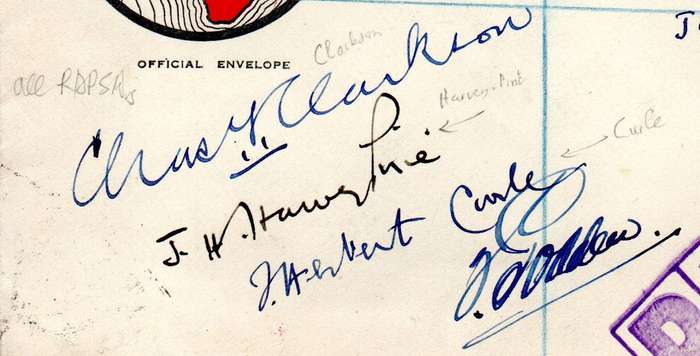 J
OFFICIAL ENVELOPE
Clarkson
all RDPSAs
Chas Clarkson
Harvey Pirie
J. H. Harvey Pirie
Curle
J. Herbert Curle
D